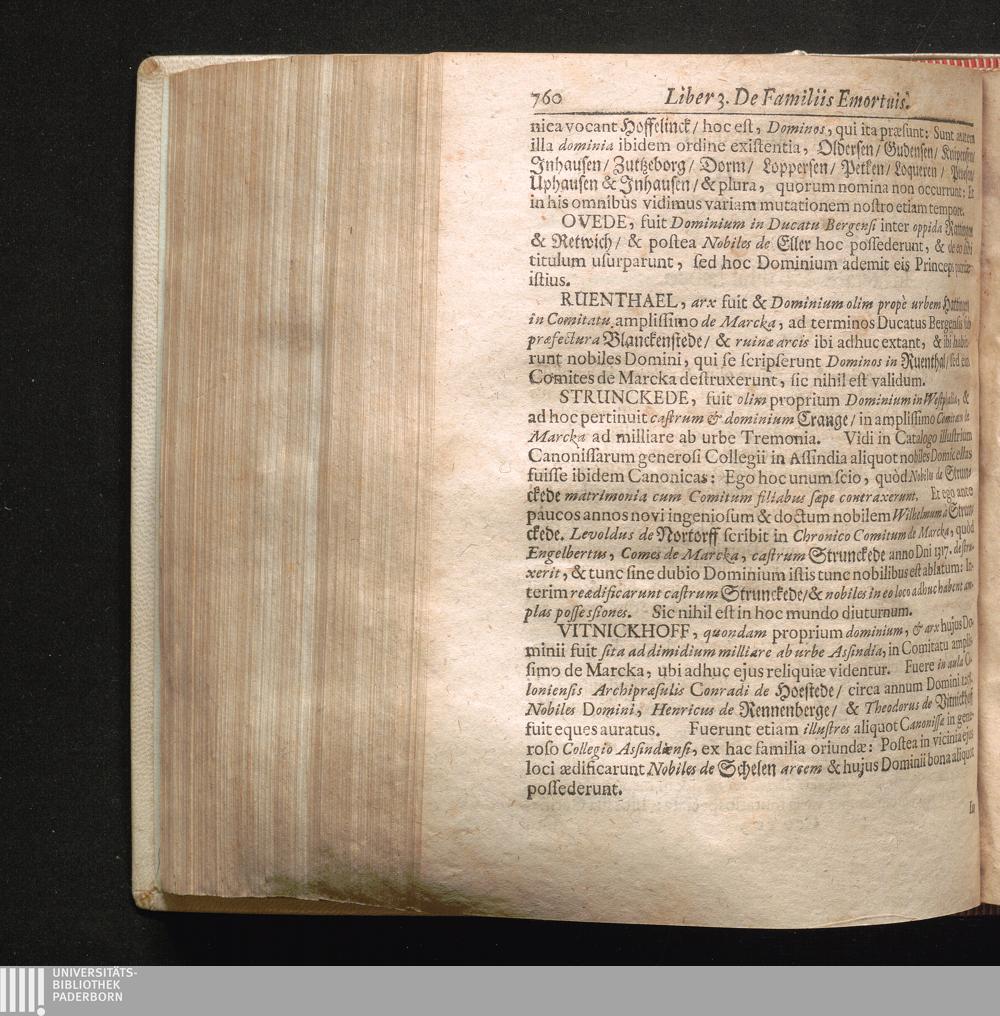 760 Liber 3. De Familiis Emortuis.
nica vocant Hoffelinck / hoc est, Dominos, qui ita præsunt: Sunt autem
illa dominia ibidem ordine existentia, Oldersen / Gudensen / Knipensen /
Inhausen / Zutzeborg / Dorm / Loppersen / Petken / Loqueren /
Uphausen & Inhausen / & plura, quorum nomina non occurrunt: Et
in his omnibus vidimus variam mutationem nostro etiam tempore.
OVEDE, fuit Dominium in Ducatu Bergensi inter oppida Rattingen
& Retwich / & postea Nobiles de Eller hoc possederunt, & de eo sibi
titulum usurparunt, sed hoc Dominium ademit eis Princeps patriæ
istius.
RUENTHAEL, arx fuit & Dominium olim propè urbem Hattingen
in Comitatu amplissimo de Marcka, ad terminos Ducatus Bergensis sub
præfectura Blanckenstede / & ruinæ arcis ibi adhuc extant, & ibi habita-
runt nobiles Domini, qui se scripserunt Dominos in Ruenthal / sed eam
Comites de Marcka destruxerunt, sic nihil est validum.
STRUNCKEDE, fuit olim proprium Dominium in Westphalia, &
ad hoc pertinuit castrum & dominium Crange / in amplissimo Comitatu de
Marcka ad milliare ab urbe Tremonia. Vidi in Catalogo illustrium
Canonissarum generosi Collegii in Assindia aliquot nobiles Domicellas
fuisse ibidem Canonicas: Ego hoc unum scio, quòd Nobiles de Strun-
ckede matrimonia cum Comitum filiabus sæpe contraxerunt. Et ego ante
paucos annos novi ingeniosum & doctum nobilem Wilhelmum à Strun-
ckede. Levoldus de Nortorff scribit in Chronico Comitum de Marcka, quòd
Engelbertus, Comes de Marcka, castrum Strunckede anno Dni 1317. destru-
xerit, & tunc sine dubio Dominium istis tunc nobilibus est ablatum: In-
terim reædificarunt castrum Strunckede / & nobiles in eo loco adhuc habent am-
plas possessiones. Sic nihil est in hoc mundo diuturnum.
VITNICKHOFF, quondam proprium dominium, & arx hujus Do-
minii fuit sita ad dimidium milliare ab urbe Assindia, in Comitatu amplis-
simo de Marcka, ubi adhuc ejus reliquiæ videntur. Fuere in aula Co-
loniensis Archipræsulis Conradi de Hoestede / circa annum Domini
Nobiles Domini, Henricus de Rennenberge / & Theodorus de Vitnickhoff
fuit eques auratus. Fuerunt etiam illustres aliquot Canonissæ in gene-
roso Collegio Assindiensi, ex hac familia oriundæ: Postea in vicinia ejus
loci ædificarunt Nobiles de Schelen arcem & hujus Dominii bona aliquot
possederunt.
UNIVERSITÄTS-
BIBLIOTHEK
PADERBORN